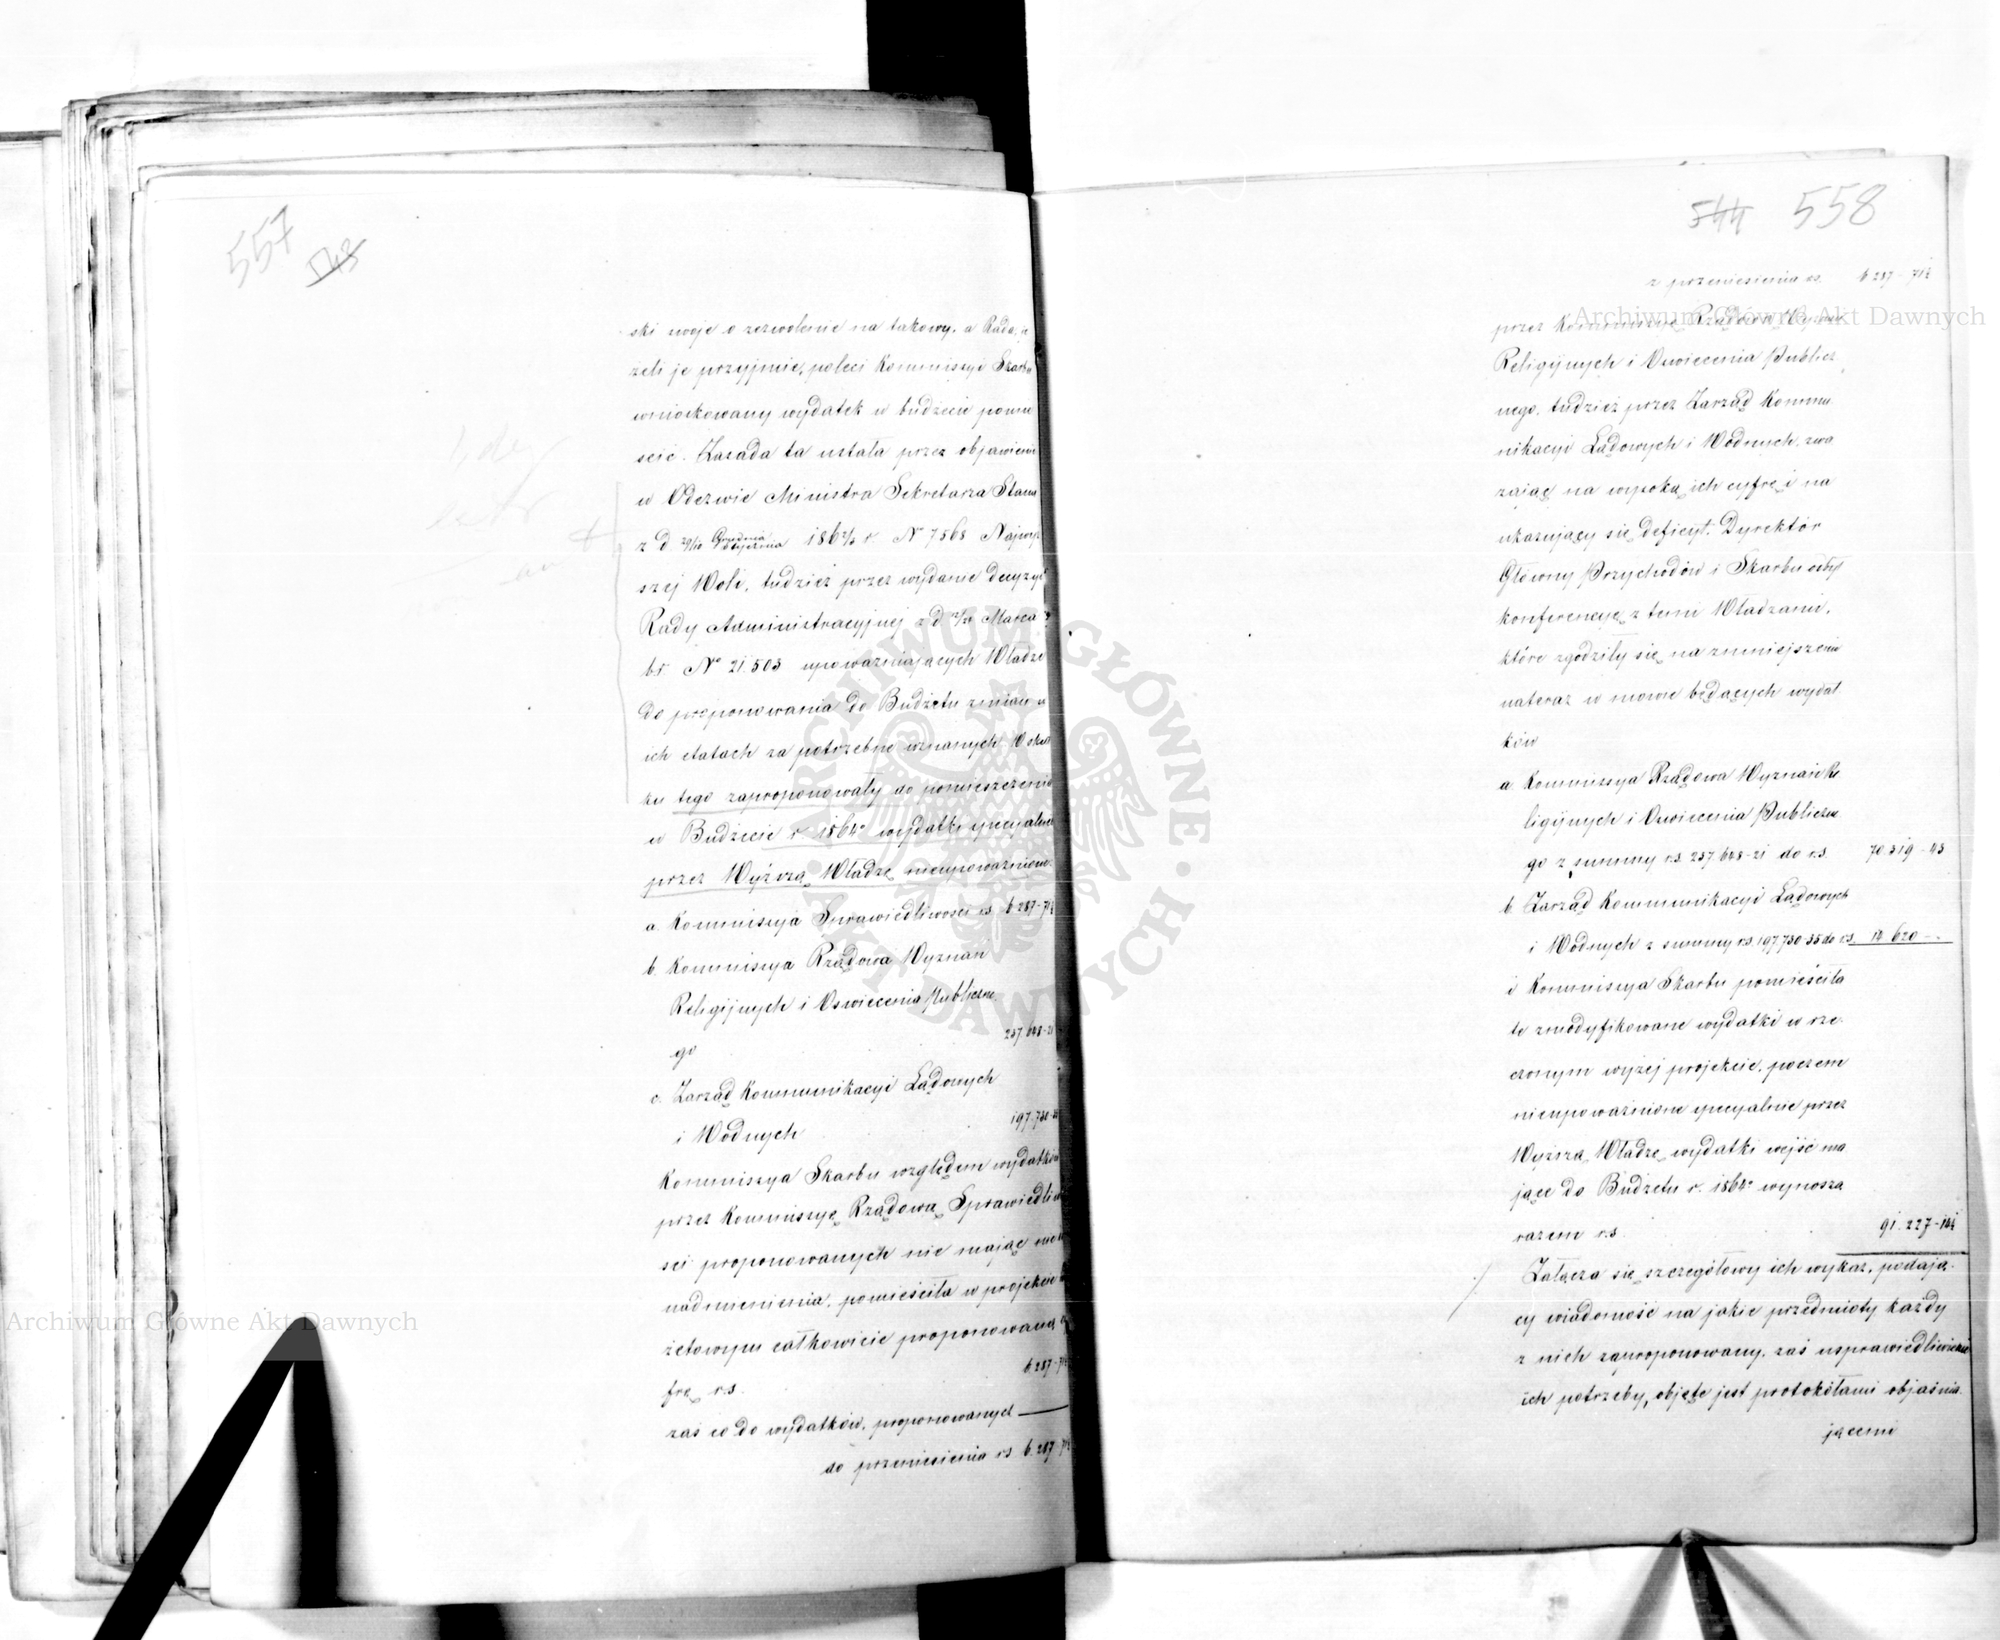 557 543
ski swoje o zezwolenie na takowy, a Rada, je
żeli je przyjmie, poleci Kommissyi Skarbu
wnioskowany wydatek w budżecie pomie
ścić. Zasada ta ustała przez objawienie
w Odezwie Ministra Sekretarza Stanu
z d. 29/10 Grudnia/Stycznia 186 2/3 r. No 7568 Najwyż
szej Woli, tudzież przez wydanie decyzyi
Rady Administracyjnej z d. Marca
br. No 21.503 upoważniających Władze
do proponowania do Budżetu zmian w
ich etatach za potrzebne uznanych. W skut
ku tego zaproponowały do pomieszczenia
w Budżecie r. 1864o wydatki specyalnie
przez Wyższą Władzę nieupoważnione.
a. Kommissya Sprawiedliwości rs. 6.287-71½
b. Kommissya Rządowa Wyznań
Religijnych i Oświecenia Publiczne
go 237.648-21
c. Zarząd Kommunikacyi Lądowych
i Wodnych 197.730-35
Kommissya Skarbu względem wydatków
przez Kommissyę Rządową Sprawiedliwo
ści proponowanych nie mając nic do
nadmienienia, pomieściła w projekcie bud
żetowym całkowicie proponowaną cy
frę rs. 6.287-71½
zaś co do wydatków, proponowanych
do przeniesienia rs. 6.287-71½
544 558
z przeniesienia rs. 6.287-71½
przez Kommissyę Rządową Wyznań
Religijnych i Oświecenia Public
nego, tudzież przez Zarząd Kommu
nikacyi Lądowych i Wodnych, zwa
żając na wysoką ich cyfrę i na
ukazujący się deficyt, Dyrektór
Główny Przychodów i Skarbu odbył
konferencyę z temi Władzami,
które zgodziły się na zmniejszenie
nateraz w mowie będących wydat
ków
a. Kommissya Rządowa Wyznań Re
ligijnych i Oświecenia Publiczne
go z summy rs. 237.648-21 do rs. 70.319-43
b. Zarząd Kommunikacyi Lądowych
i Wodnych z summy rs. 197.730 35 do rs. 14.620 -
i Kommissya Skarbu pomieściła
te zmodyfikowane wydatki w rze
czonym wyżej projekcie, poczem
nieupoważnione specyalnie przez
Wyższą Władzę wydatki wejść ma
jące do Budżetu r. 1864o wynoszą
razem rs. 91.227-14½
Załącza się szczegółowy ich wykaz, podają
cy wiadomość na jakie przedmioty każdy
z nich zaproponowany, zaś usprawiedliwienie
ich potrzeby, objęte jest protokółami objaśnia
jącemi
Archiwum Główne Akt Dawnych
Archiwum Główne Akt Dawnych
ARCHIWUM GŁÓWNE AKT DAWNYCH